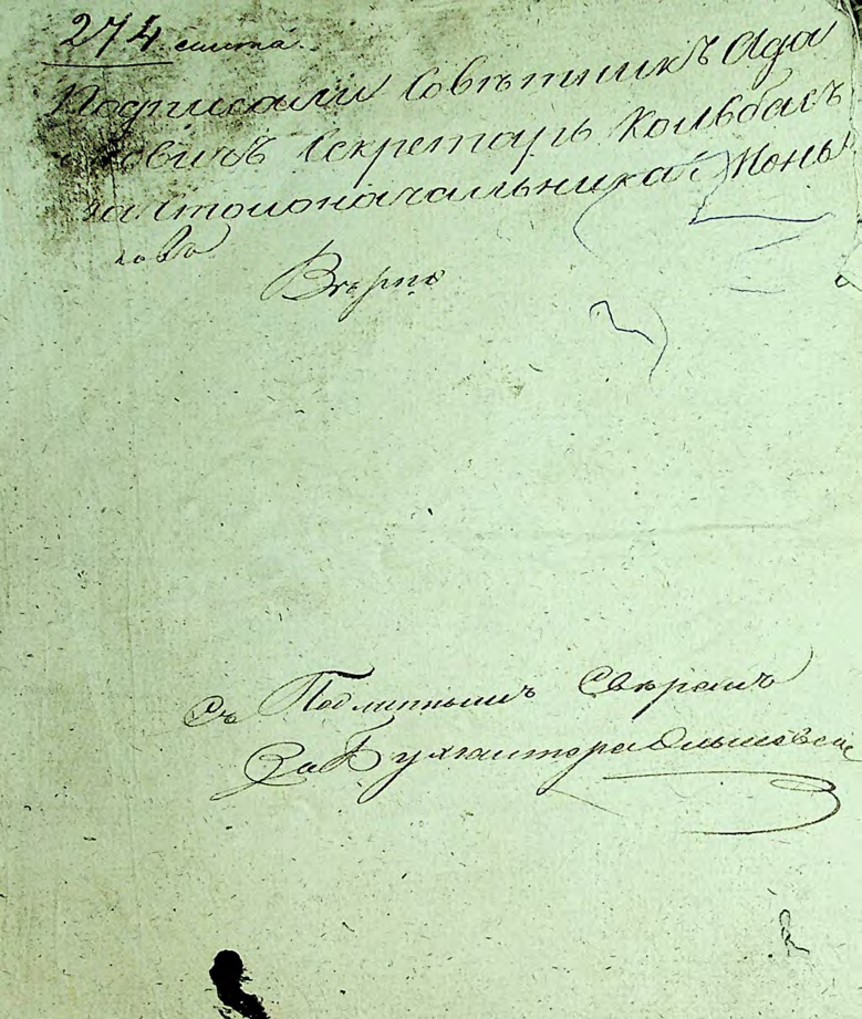 274 листа.
Подписали Совѣтникъ Ада
мовичъ Секретарь Кольбасъ
за столоначальника Монь
ковъ
Вѣрно
Съ Подлиннымъ Свѣрялъ
За Бухгалтера Ольшевск